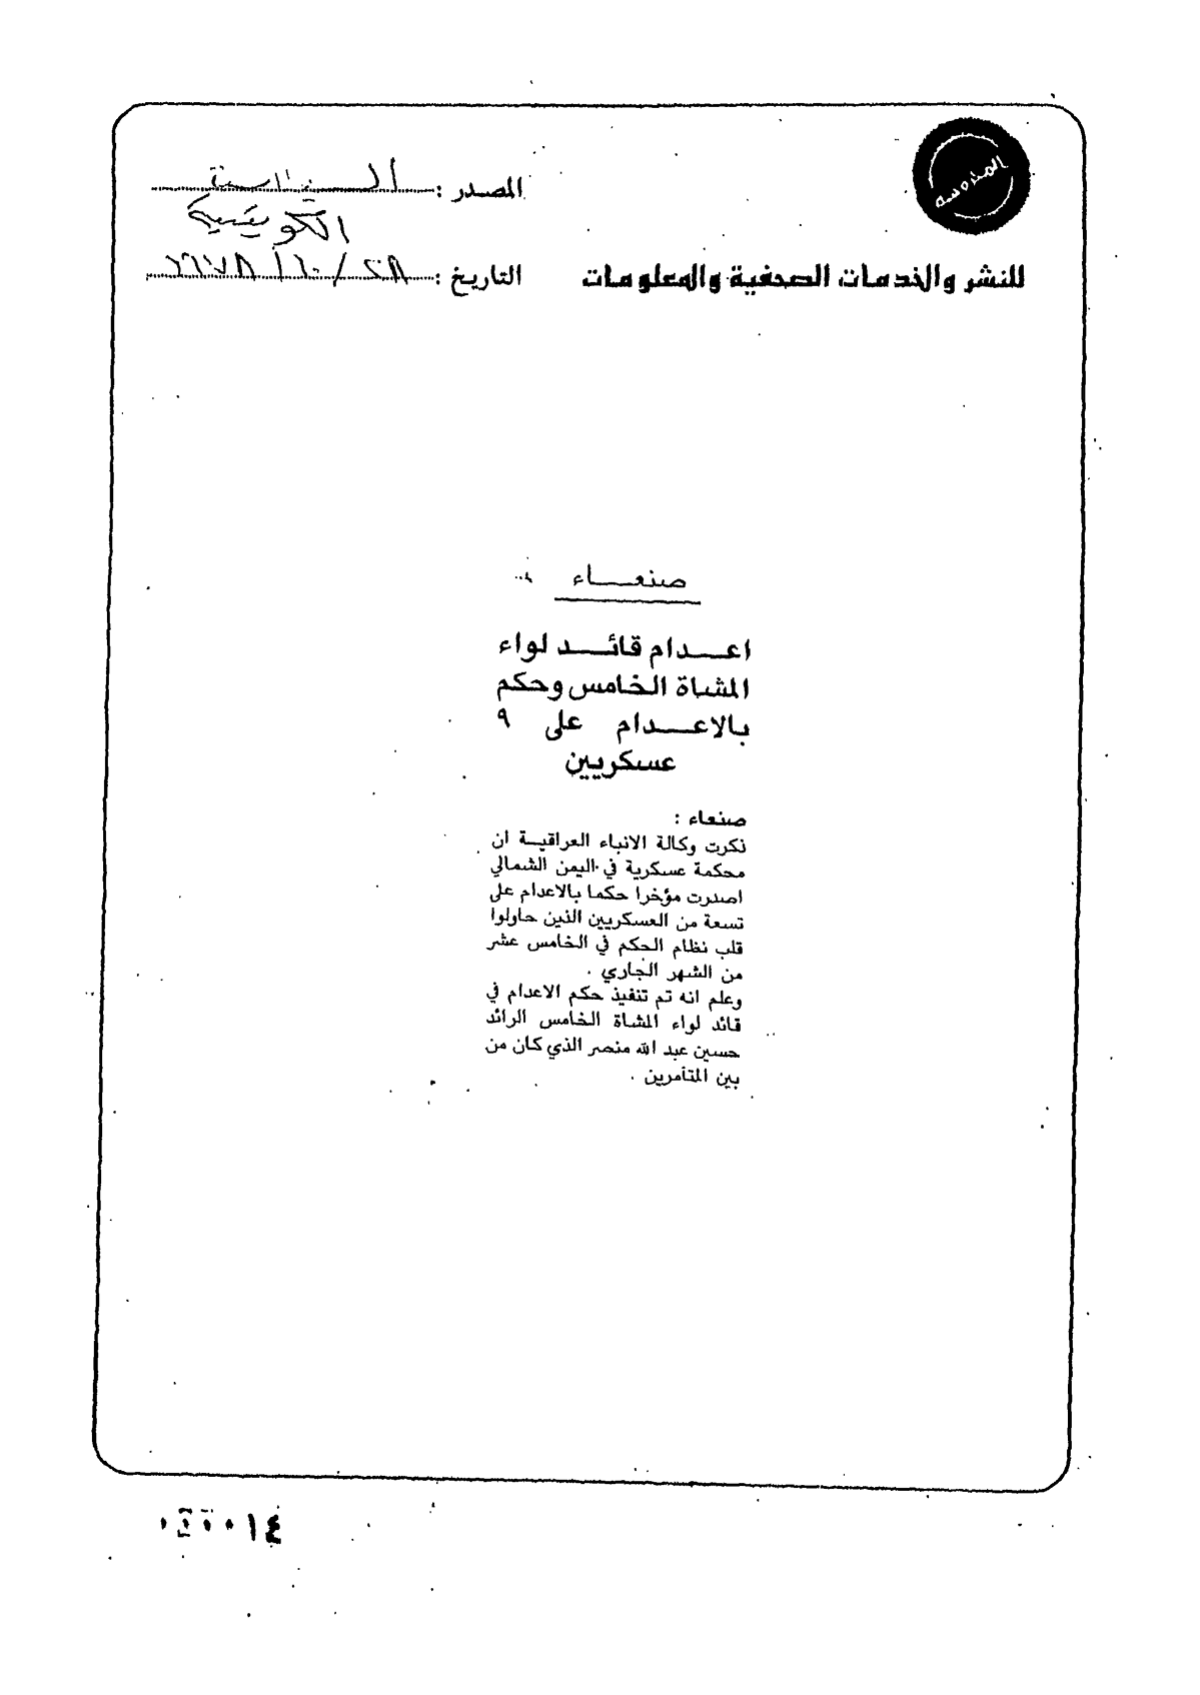 المحروسة
المصدر : السياسة
الكويتية
للنشر والخدمات الصحفية والمعلومات
التاريخ : ٢٨ / ١٠ / ١٩٧٨
صنعـــاء
اعــدام قائــد لواء
المشاة الخامس وحكم
بالاعــدام على ٩
عسكريين
صنعاء :
ذكرت وكالة الانباء العراقيـة ان
محكمة عسكرية في اليمن الشمالي
اصدرت مؤخرا حكما بالاعدام على
تسعة من العسكريين الذين حاولوا
قلب نظام الحكم في الخامس عشر
من الشهر الجاري .
وعلم انه تم تنفيذ حكم الاعدام في
قائد لواء المشاة الخامس الرائد
حسين عبد الله منصر الذي كان من
بين المتآمرين .